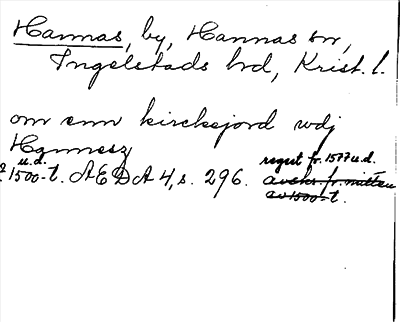 Hannas, by, Hannas sn,
Ingelstads hd, Krist. l.
om enn kircksjord wdj
Hannesz
u.d.
1500-t. AEDA 4, s. 296.
regest fr. 1577 u.d.
avskr. fr. mitten
av 1500-t.